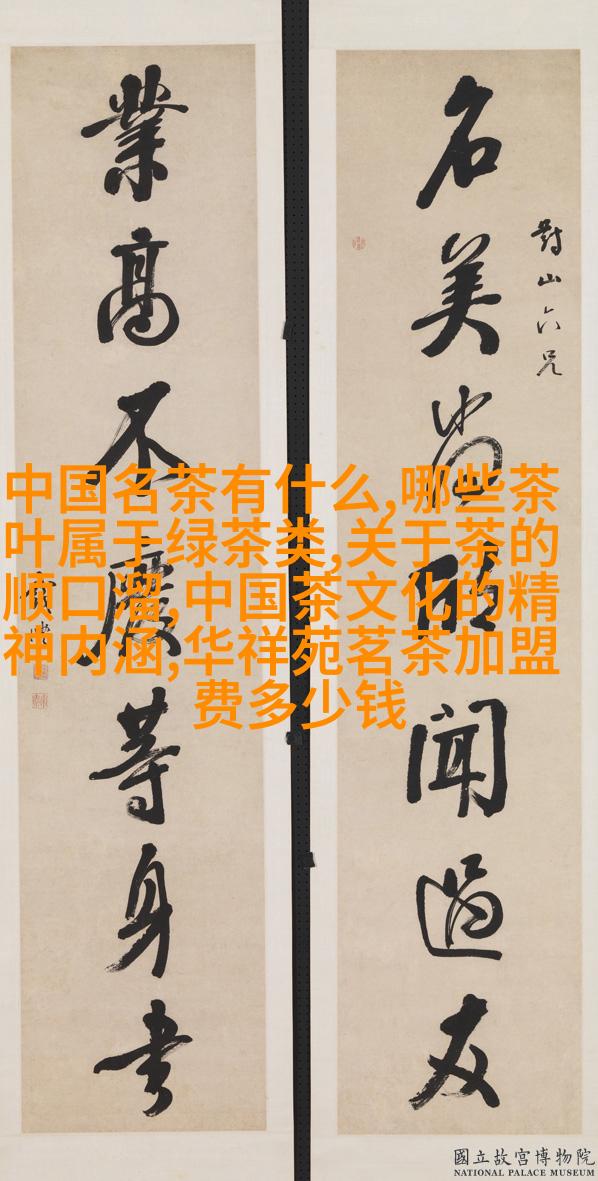 對山六兄
名美尚欣聞過友
業高不廢等身書
中国名茶有什么,哪些茶
叶属于绿茶类,关于茶的
顺口溜,中国茶文化的精
神内涵,华祥苑茗茶加盟
费多少钱
國立故宮博物院
NATIONAL PALACE MUSEUM